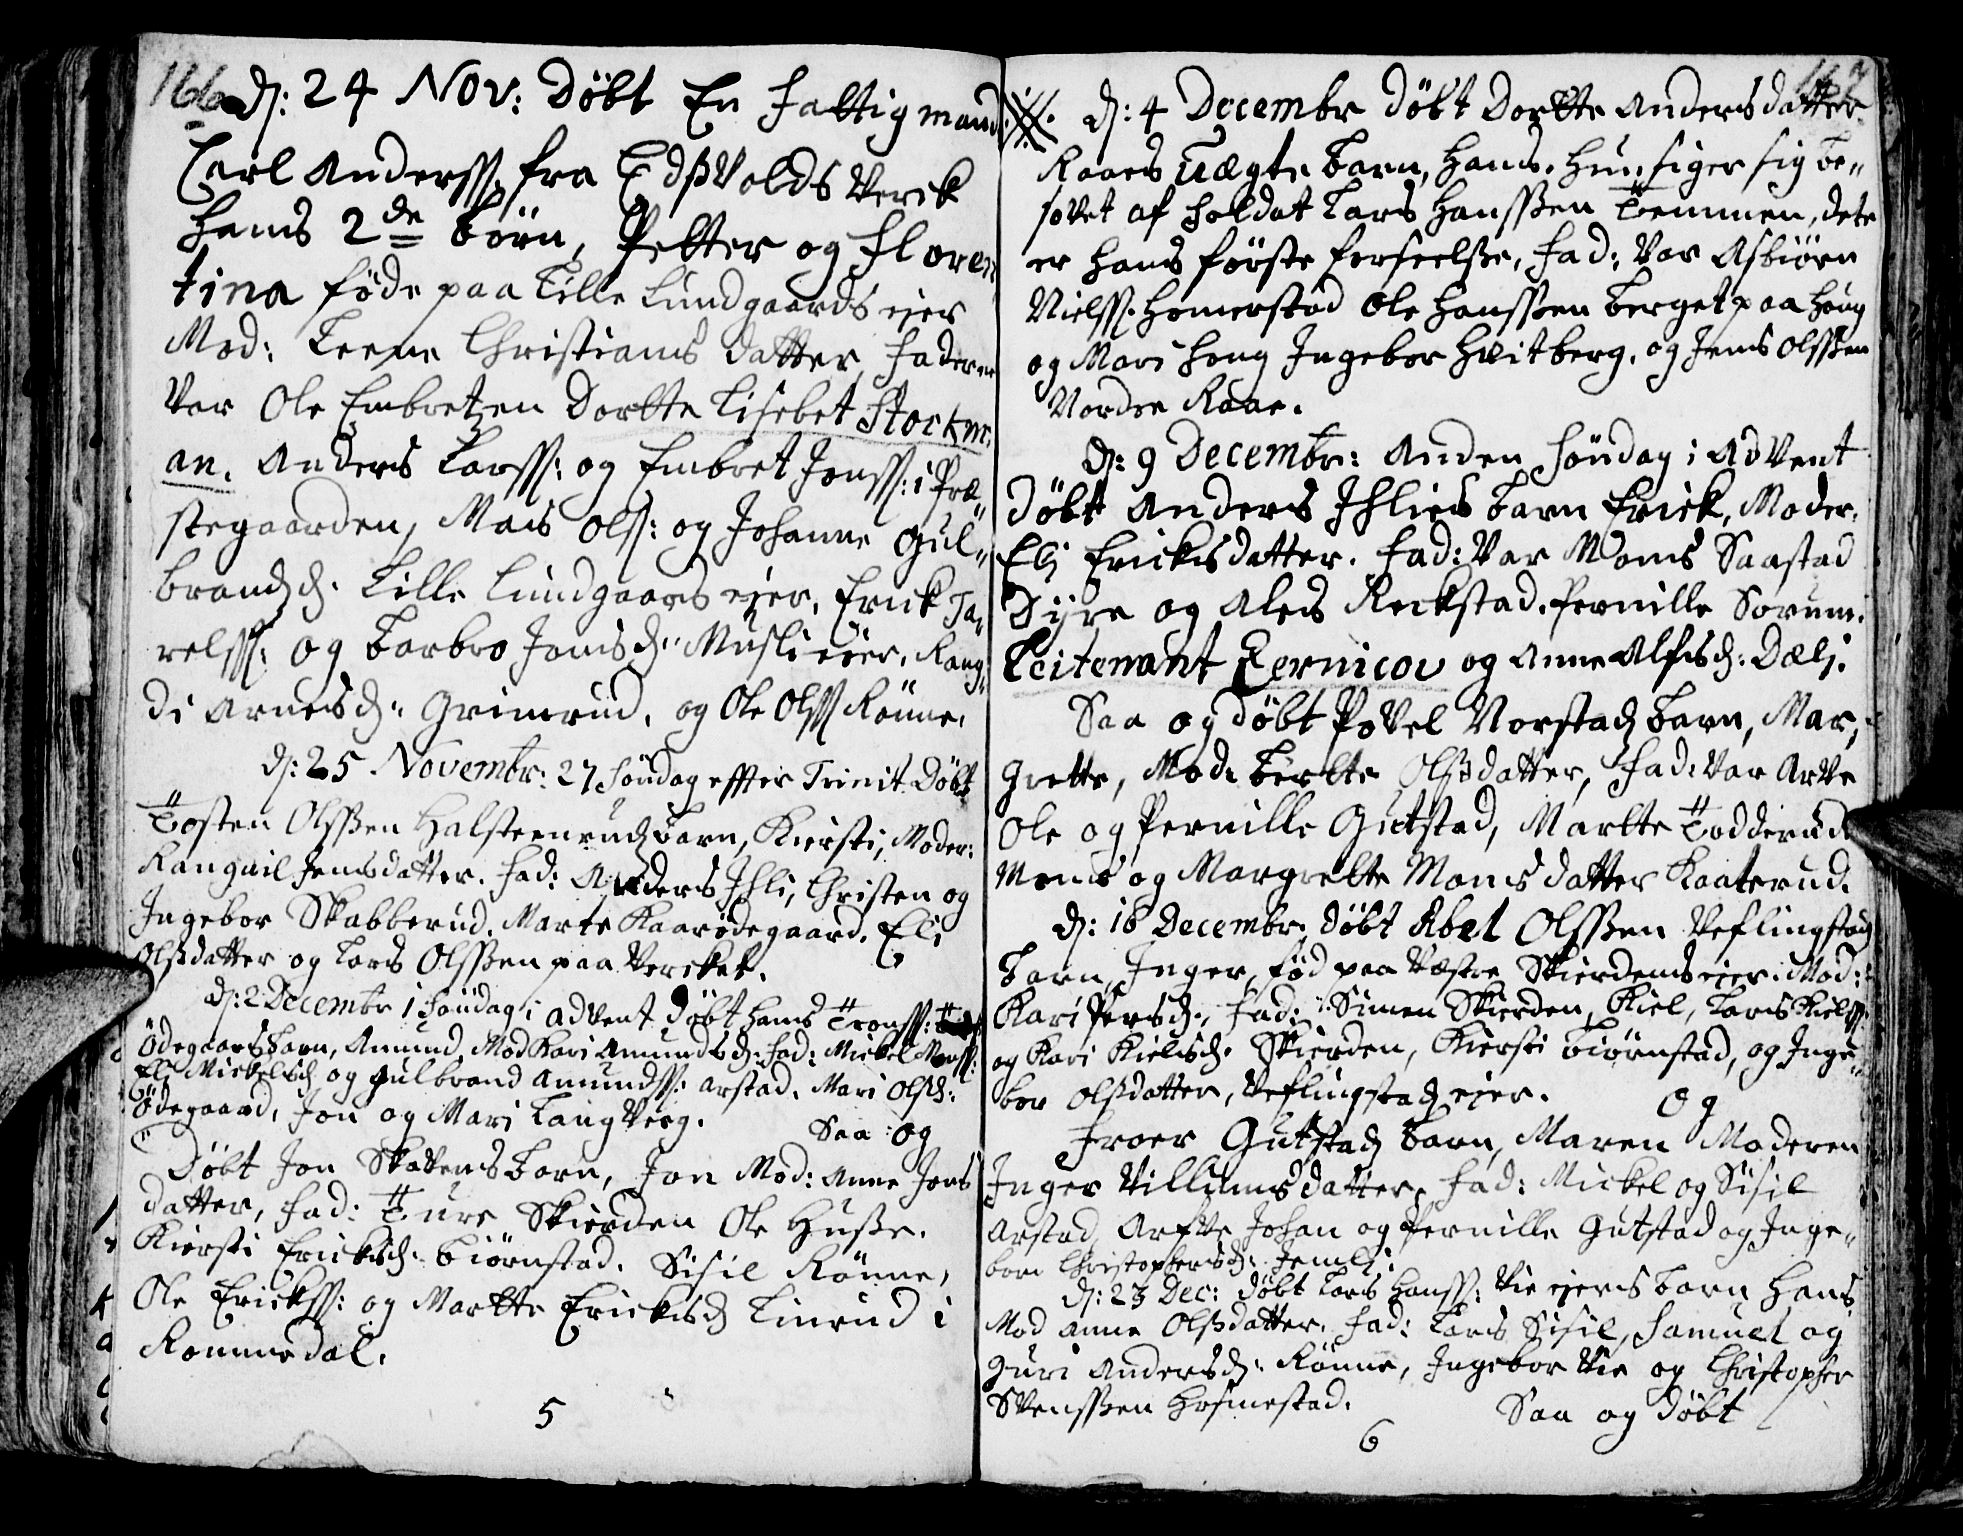 166
d: 24 Nov: Döbt En fattig mand
Carl Anderss: fra Edsvolds Verck
hans 2de börn, Petter og Floren
tina föde paa Lille Lundgaards eier
Mod: Leene Christians datter, Faderne
Var Ole Embretzen Dorte Lisebet Stockm
an. Anders Larss: og Embret Jonss: i Præ„
stegaarden, Mads Olss: og Johanne Gul„
brandsd. Lille Lundgaards eier, Erick Ja„
relss: og Barbro Jonsd: Musli eier, Rang„
di Arnesd: Grimrud, og Ole Olss Rönne.
d: 25 Novembr: 27 Söndag effter Trinit. Döbt
Tosten Olssen Halsteenruds barn, Kiersti, Moder:
Rangnil Jensdatter. Fad: Anders Ihli, Christen og
Ingebor Skabberud. Marte Kaarödegaard. Eli
Olsdatter og Lars Olssen paa Vercket.
d: 2 Decembr 1 Söndag i Advent Döbt Hans Tronss:
Ödegaards barn, Amund, Mod Kari Amundsd: Fad: Mickel Monss:
Eli Mickelsd og Gulbrand Amundss: Arstad. Mari Olsd:
Ödegaard, Jon og Mari Langverg.
Saa og
Döbt Jon Skattens barn, Jon Mod: Anne Jons
datter, Fad: Ture Skierden Ole Husse.
Kiersti Ericksd. Biörnstad. Sisil Rönne,
Ole Erickss: og Marte Ericksd Linrud i
Rommedal.
5
167
d: 4 Decembr döbt Dorte Andersdatter
Raaes Uægte barn, Hans. Hun siger sig be„
sovet af Soldat Lars Hanssen Temmen, dete
er hans förste forseelse, Fad: Var Asbiörn
Nielss. Homerstad Ole Hanssen Berget paa Houg
og Mari Houg Ingebor Hvitberg, og Jens Olssen
Nordre Raae.
d: 9 Decembr: Anden Söndag i Advent
Döbt Anders Ihlies barn Erick, Moder.
Eli Ericksdatter. Fad: Var Mons Saastad
Syre og Ales Reckstad. Pernille Sorum.
Leitenant Zernicou og Anne Alfsd: Dæli.
Saa og Döbt Povel Norstads barn, Mar„
grette, Mod: Berte Olsdatter, Fad: Var Arve
Ole og Pernille Gutstad, Marte Todderud
Mons og Margrette Monsdatter Kaaterud.
d: 16 Decembr döbt Abel Olssen Veflingstads
barn, Inger, föd paa Væstre Skierdens eier. Mod:
Kari Persd., Fad: Simen Skierden, Kiel, Lars Kielss:
og Kari Kielsd. Skierden, Kiersti Biörnstad, og Inge„
bor Olsdatter, Veflingstads eier. Og
Froer Gutstads barn, Maren Moderen
Inger Villumsdatter, Fad: Mickel og Sisil
Arstad Arfve Johan og Pernille Gutstad og Inge„
bor Christophersd: Jemli.
d: 23 Dec: Döbt Lars Hanss: Vie eiers barn Hans
Mod Anne Olsdatter. Fad: Lars Sisil, Samuel og
Guri Andersd: Rönne, Ingebor Vie og Christopher
Svenssen Hosmestad.
Saa og döbt
6